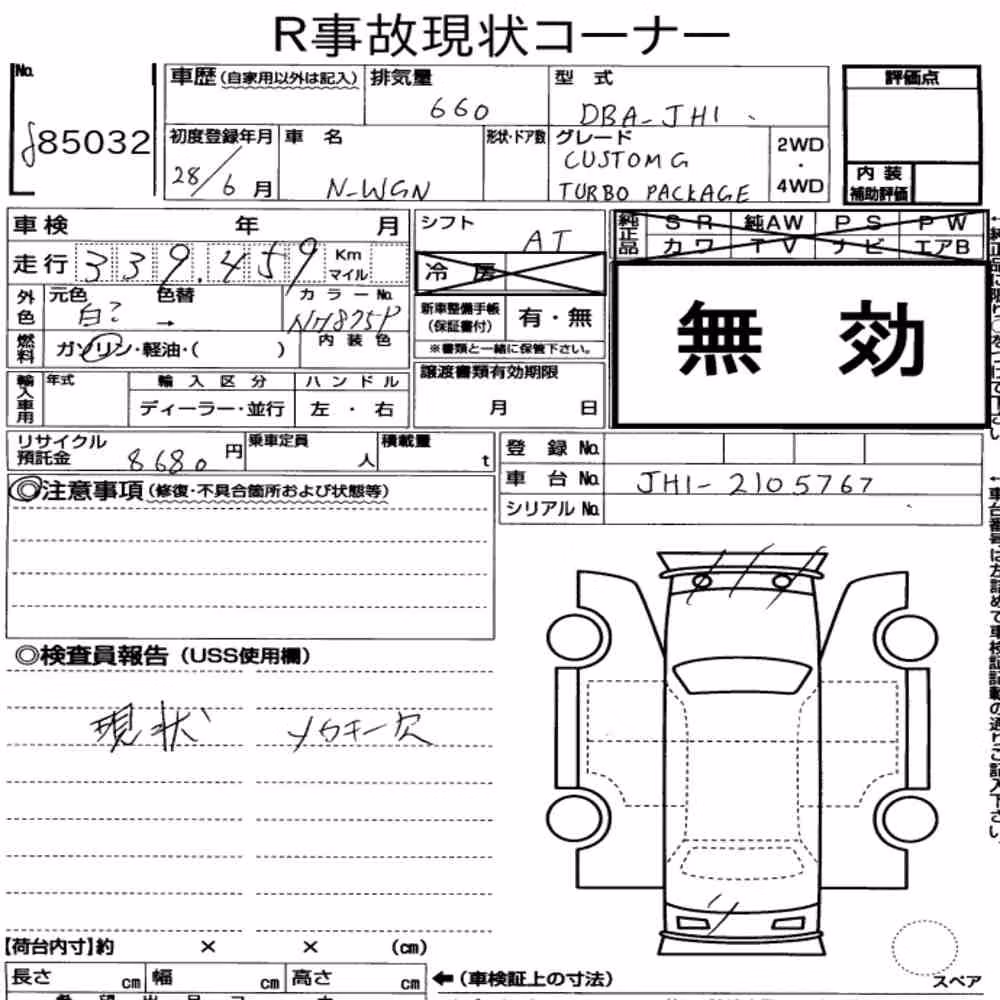 R事故現状コーナー
No.
85032
車歴(自家用以外は記入)
排気量
660
型 式
DBA-JH1
評価点
初度登録年月
28/6月
車 名
N-WGN
形状・ドア数
グレード
CUSTOM G
TURBO PACKAGE
2WD
・
4WD
内 装
補助評価
車検 年 月
シフト
AT
純正品
S R 純AW P S P W
カワ T V ナビ エアB
走行 339.459 Km
マイル
冷 房
無 効
外色
元色 色替
白? →
カ ラ ー No.
NH875P
新車整備手帳
(保証書付)
有・無
燃料
ガソリン・軽油・( )
内 装 色
※書類と一緒に保管下さい。
輸入車用
年式
輸 入 区 分
ハ ン ド ル
ディーラー・並行
左 ・ 右
譲渡書類有効期限
月 日
リサイクル
預託金
8680 円
乗車定員
人
積載量
t
登 録 No.
車 台 No. JH1-2105767
シリアル No.
◎注意事項(修復・不具合箇所および状態等)
◎検査員報告(USS使用欄)
現状 メカキー欠
【荷台内寸】約 × × (cm)
長さ cm 幅 cm 高さ cm
←(車検証上の寸法)
スペア
←車台番号は左詰めで車検証記載の通りご記入下さい。